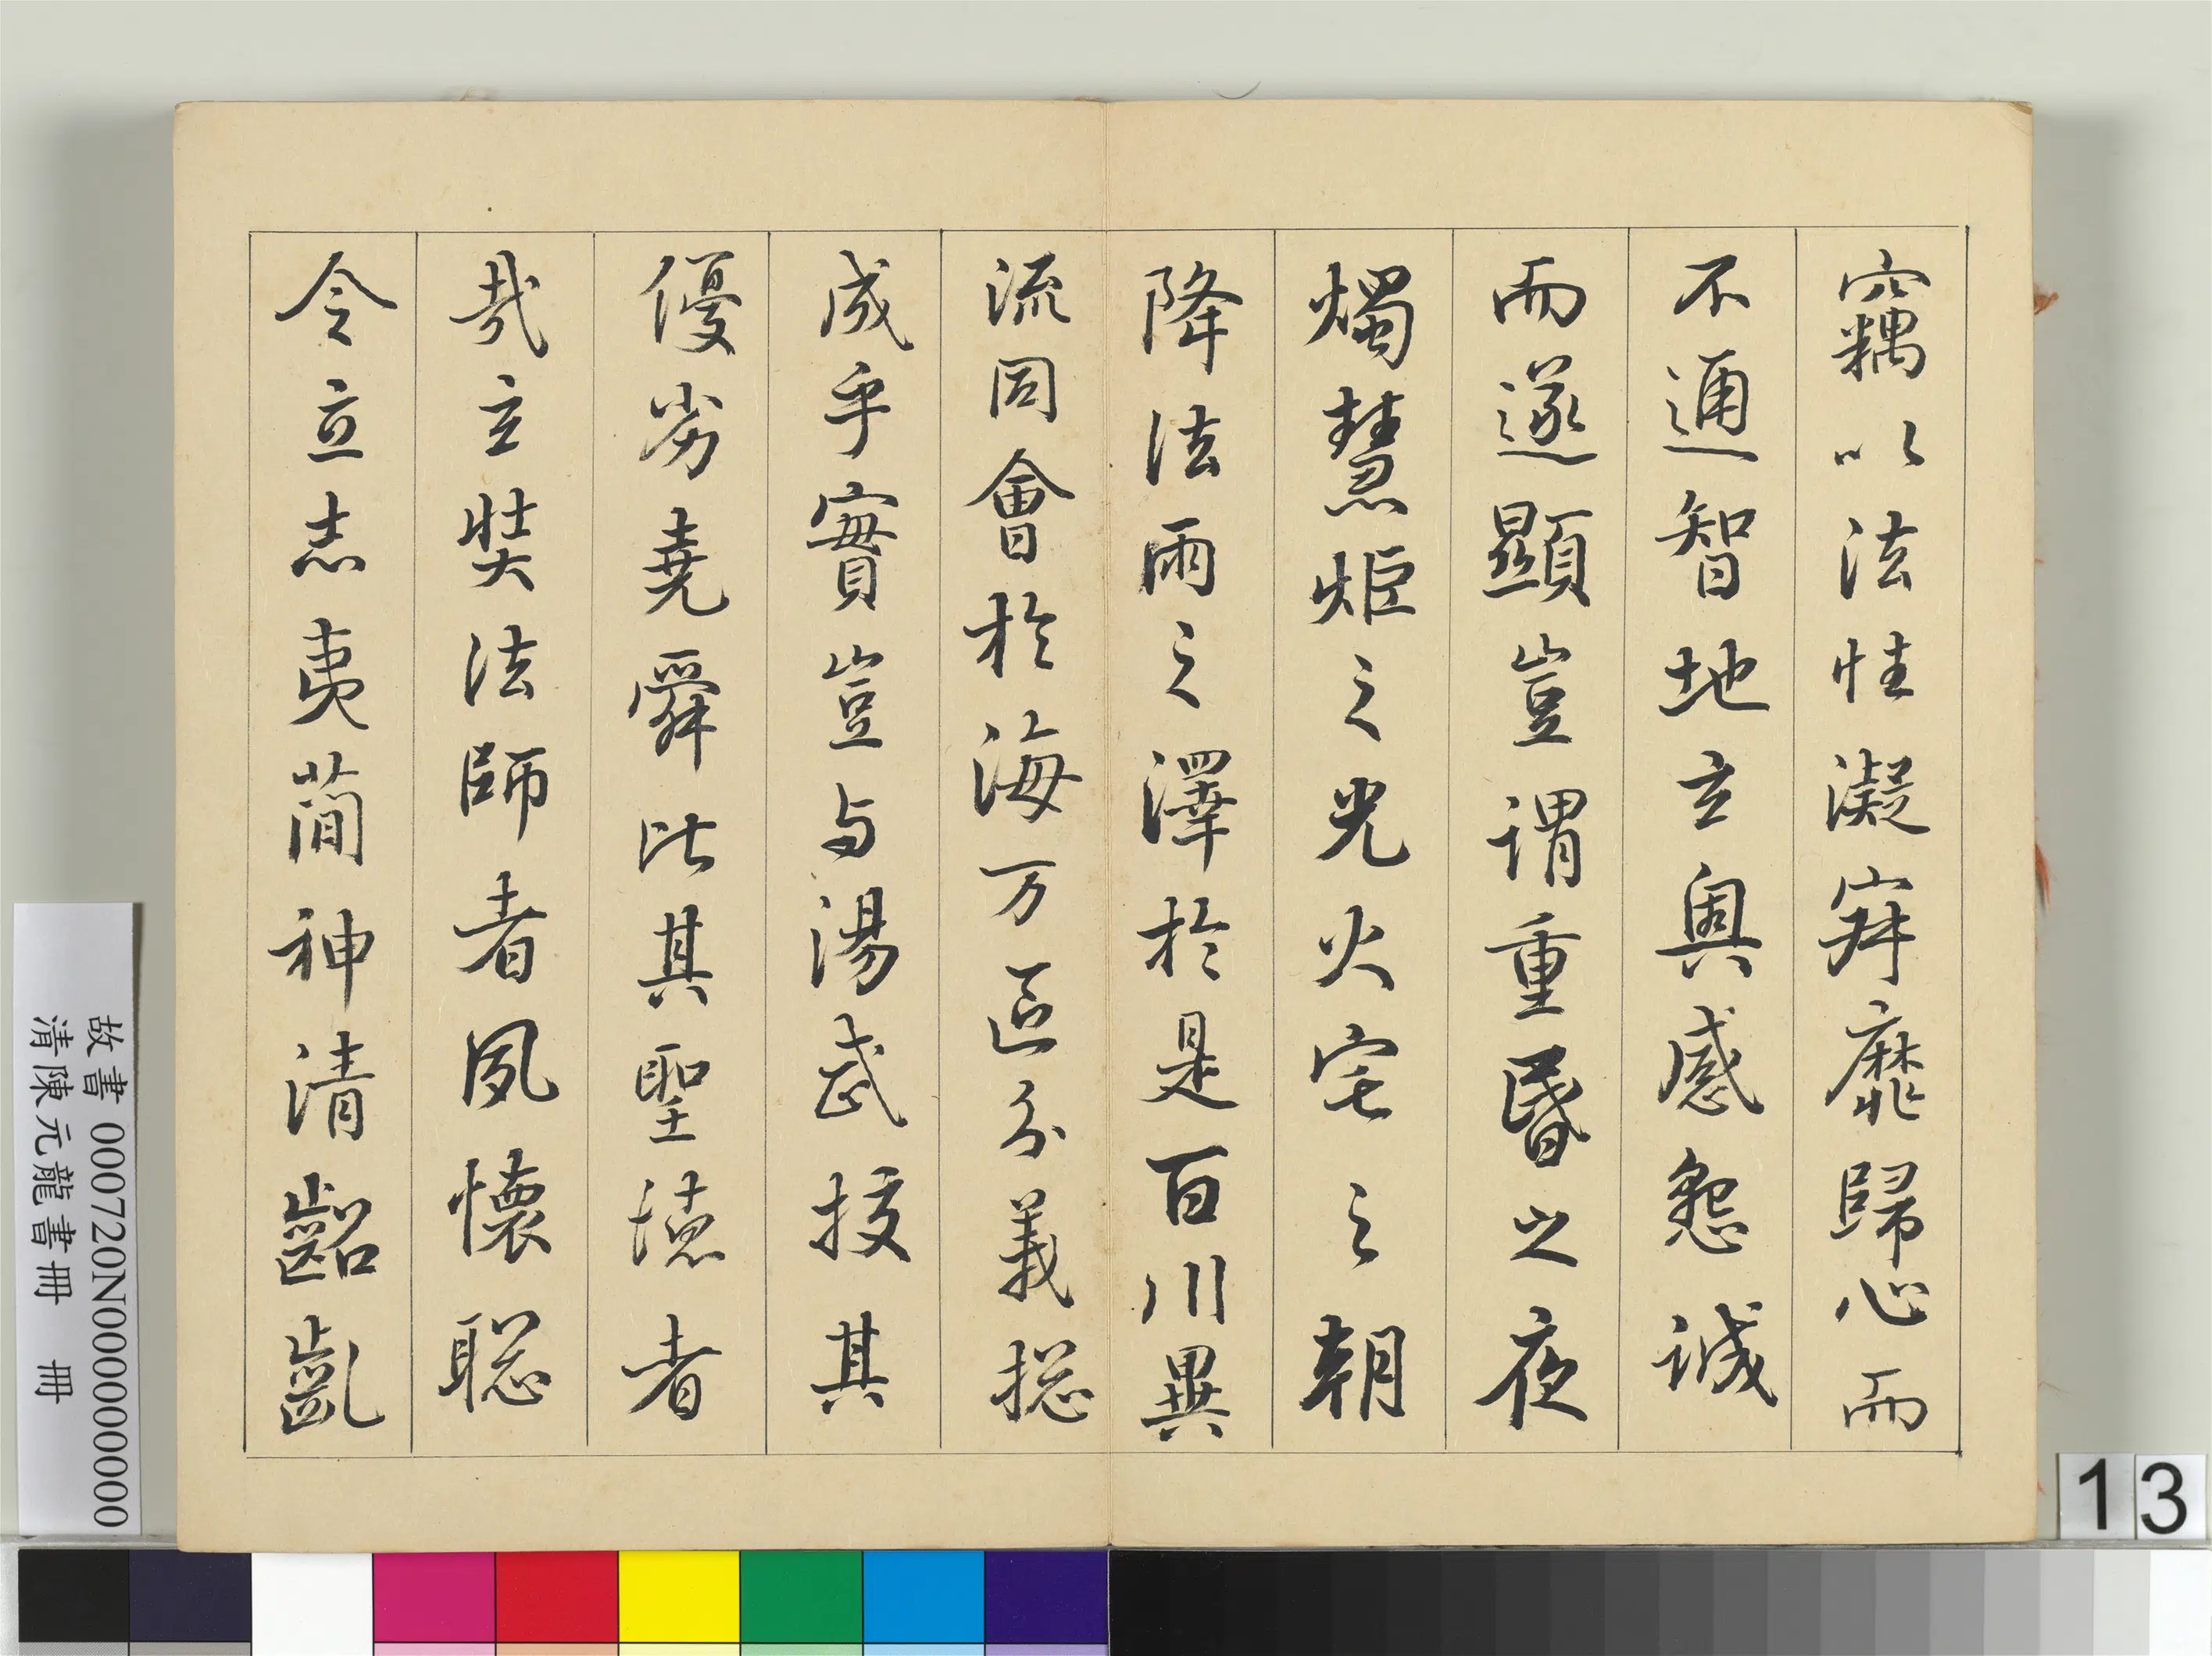 竊以法性凝寂靡歸心而
不通智地玄奧感懇誠
而遂顯豈謂重昏之夜
燭慧炬之光火宅之朝
降法雨之澤於是百川異
流同會於海万區分義揔
成乎實豈与湯武挍其
優劣堯舜比其聖德者
哉玄奘法師者夙懷聡
令立志夷簡神清齠齔
故書 000720N000000000
清陳元龍書冊 冊
13